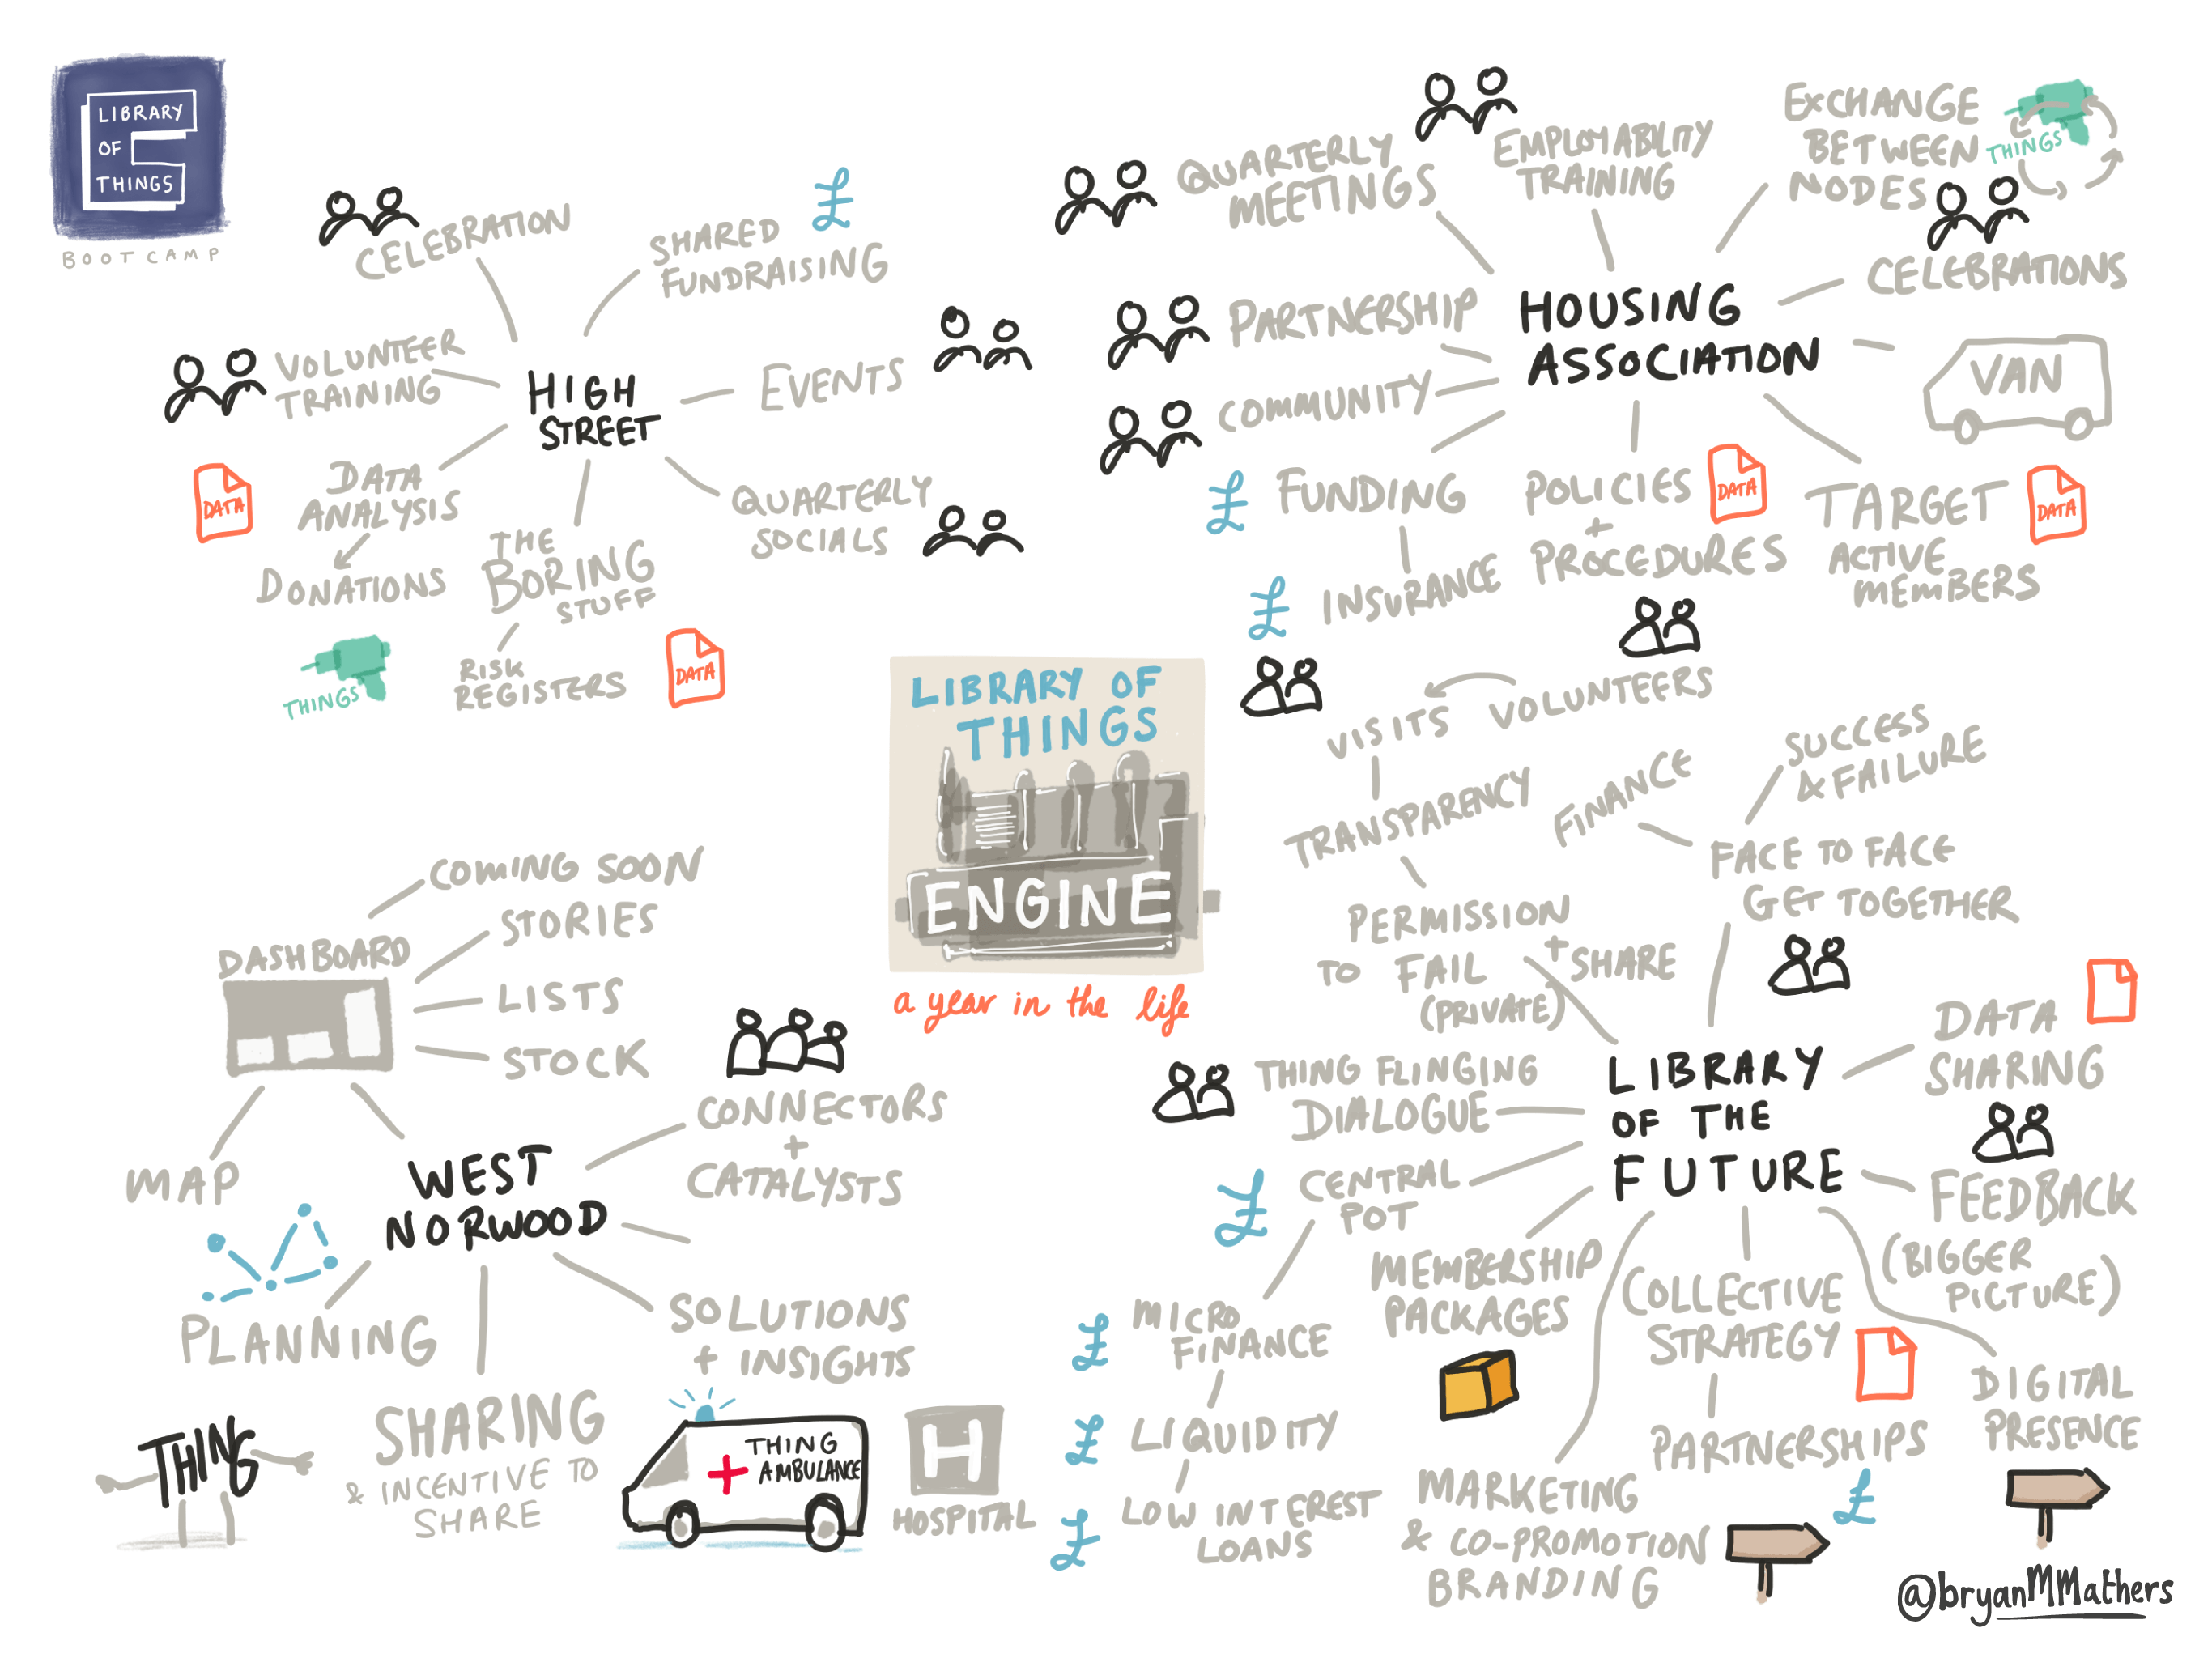 LIBRARY
OF
THINGS
BOOTCAMP
CELEBRATION
SHARED
FUNDRAISING
£
VOLUNTEER
TRAINING
HIGH
STREET
EVENTS
DATA
ANALYSIS
DATA
DONATIONS
THINGS
THE
BORING
STUFF
RISK
REGISTERS
DATA
QUARTERLY
SOCIALS
QUARTERLY
MEETINGS
EMPLOYABILITY
TRAINING
EXCHANGE
BETWEEN
NODES
THINGS
HOUSING
ASSOCIATION
CELEBRATIONS
PARTNERSHIP
VAN
COMMUNITY
£
FUNDING
£
INSURANCE
POLICIES
+
PROCEDURES
DATA
TARGET
ACTIVE
MEMBERS
DATA
LIBRARY OF
THINGS
ENGINE
a year in the life
DASHBOARD
COMING SOON
STORIES
LISTS
STOCK
MAP
WEST
NORWOOD
CONNECTORS
+
CATALYSTS
PLANNING
SOLUTIONS
+ INSIGHTS
THING
SHARING
& INCENTIVE TO
SHARE
THING
+ AMBULANCE
H
HOSPITAL
VISITS
VOLUNTEERS
TRANSPARENCY
FINANCE
SUCCESS
& FAILURE
FACE TO FACE
GET TOGETHER
PERMISSION
TO FAIL
+ SHARE
(PRIVATE)
LIBRARY
OF THE
FUTURE
THING FLINGING
DIALOGUE
DATA
SHARING
£
CENTRAL
POT
FEEDBACK
(BIGGER
PICTURE)
MEMBERSHIP
PACKAGES
£
MICRO
FINANCE
£
LIQUIDITY
£
LOW INTEREST
LOANS
COLLECTIVE
STRATEGY
PARTNERSHIPS
£
DIGITAL
PRESENCE
MARKETING
& CO-PROMOTION
BRANDING
@bryanMMathers